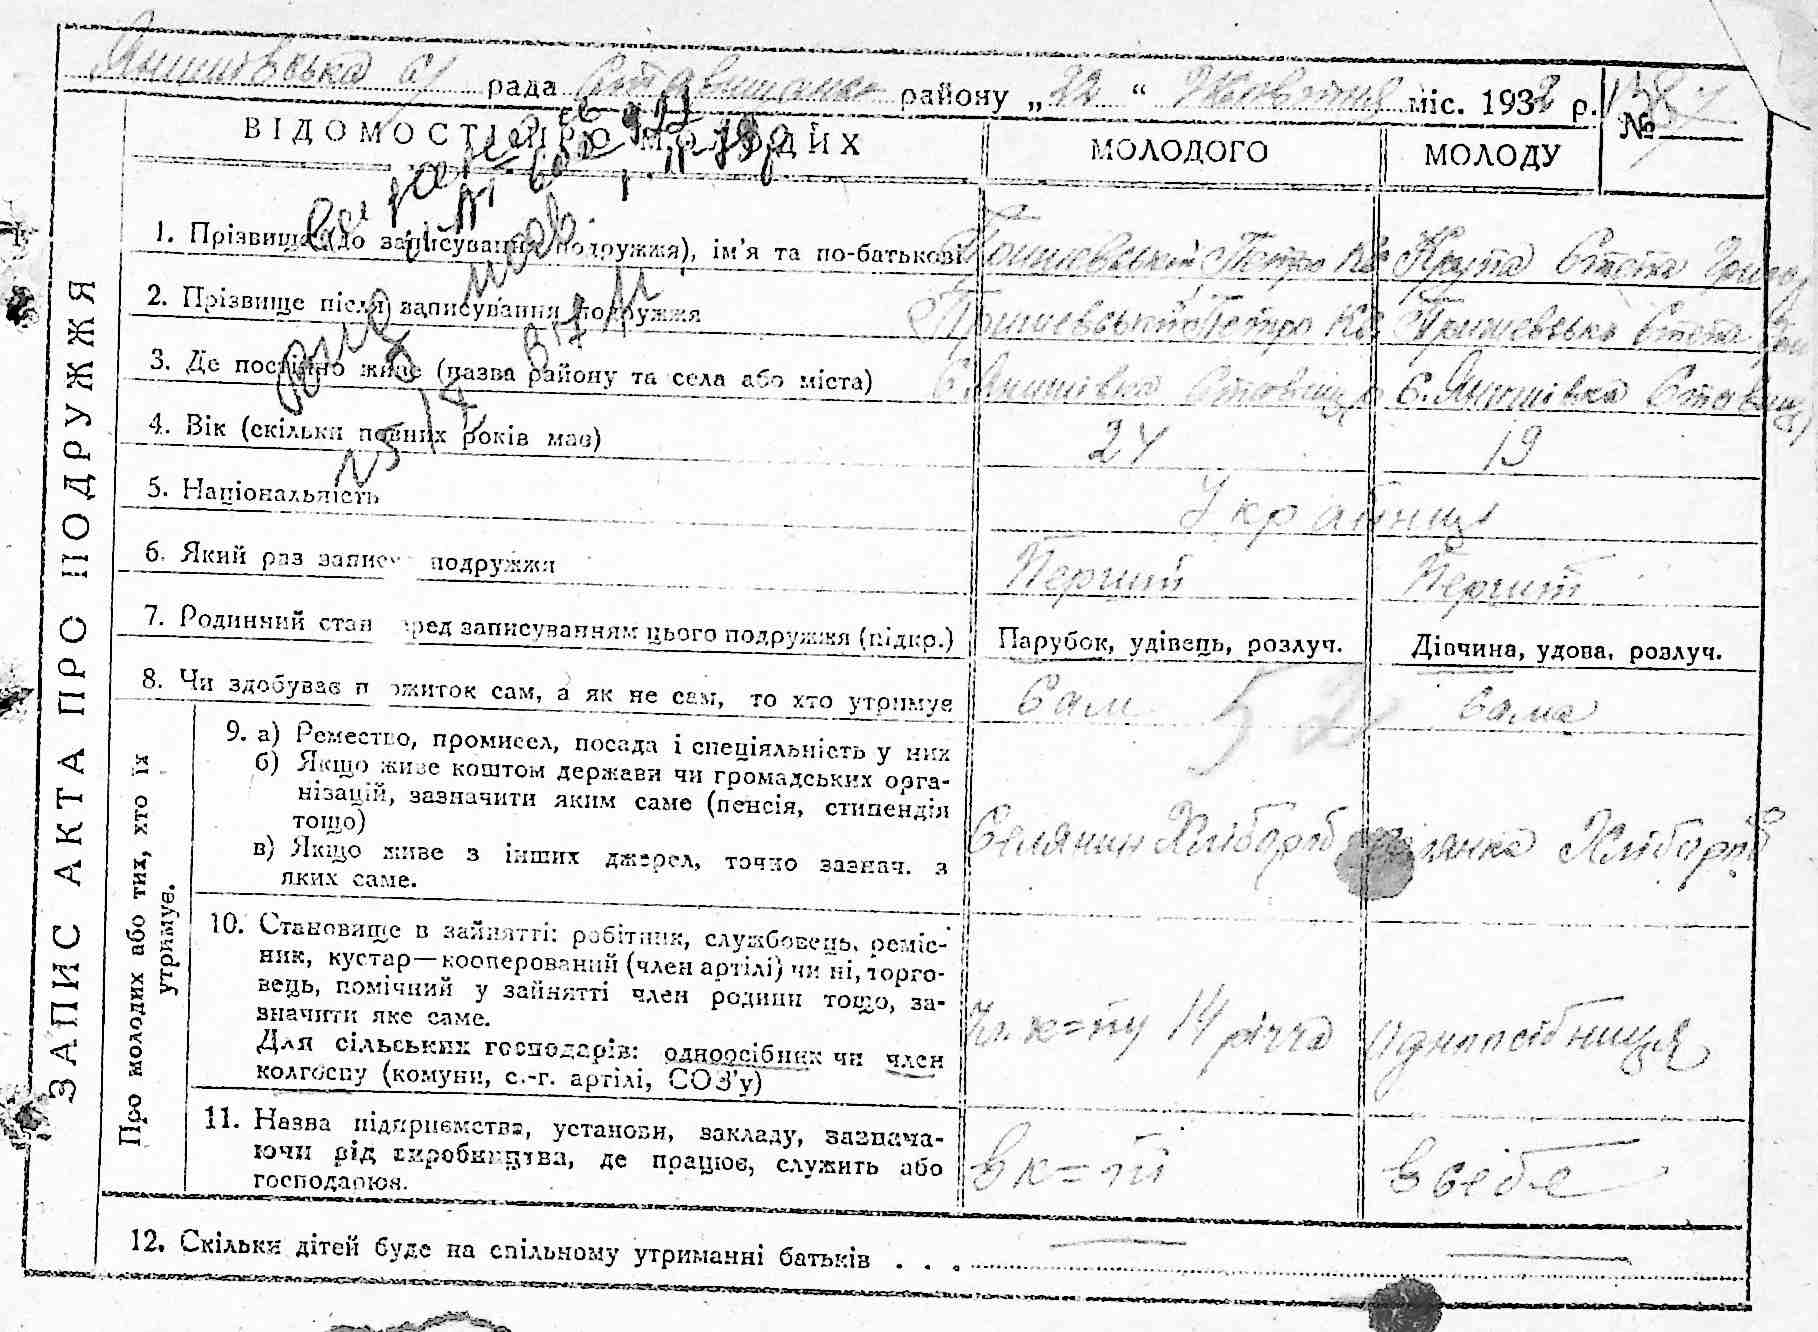 Янишівська с/ рада Ставищанськ району „22“ Жовтня міс. 1932 р. №
ВІДОМОСТІ ПРО МОЛОДИХ МОЛОДОГО МОЛОДУ
1. Прізвище (до записування подружжя), ім'я та по-батькові Петро Крупа
2. Прізвище після записування подружжя Петро
3. Де постійно живе (назва району та села або міста) с. Янишівка с. Янишівка
4. Вік (скільки повних років має) 24 19
5. Національність Українці
6. Який раз записує подружжя Перший Перший
7. Родинний стан перед записуванням цього подружжя (підкр.) Парубок, удівець, розлуч. Дівчина, удова, розлуч.
8. Чи здобуває пожиток сам, а як не сам, то хто утримує Сам 52 Сама
9. а) Ремество, промисел, посада і спеціяльність у них
б) Якщо живе коштом держави чи громадських орга-
нізацій, зазначити яким саме (пенсія, стипендія
тощо) Селянин Хлібороб Селянка Хлібороб
в) Якщо живе з інших джерел, точно зазнач. з
яких саме.
10. Становище в зайнятті: робітник, службовець, реміс-
ник, кустар—кооперований (член артілі) чи ні, торго-
вець, помічний у зайнятті член родини тощо, за-
значити яке саме. Чл. к=ту 14 річча Одноосібниця
Для сільських господарів: одноосібник чи член
колгоспу (комуни, с.-г. артілі, СОЗ'у)
11. Назва підприємства, установи, закладу, зазнача-
ючи рід виробництва, де працює, служить або В к=ті В себе
господарює.
12. Скільки дітей буде на спільному утриманні батьків . . .
ЗАПИС АКТА ПРО ПОДРУЖЖЯ
Про молодих або тих, хто їх
утримує.